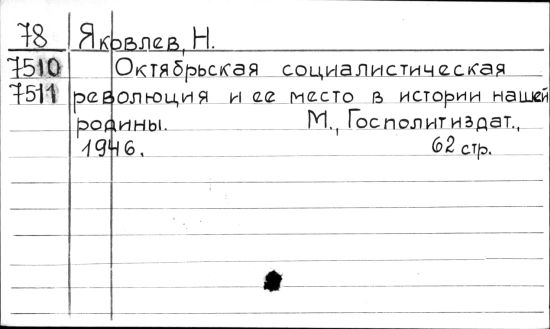 78 Яковлев, Н.
7510 Октябрьская социалистическая
7511 революция и ее место в истории нашей
родины. М., Госполитиздат.,
1946. 62 стр.